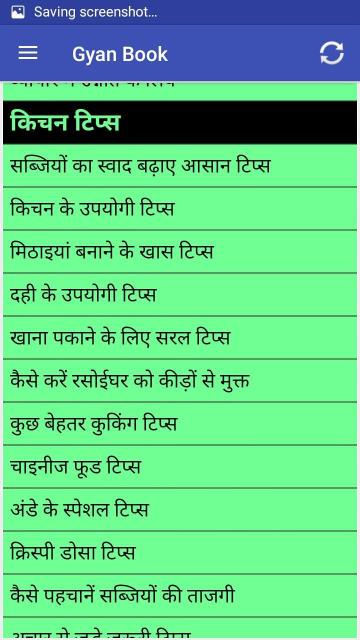 Saving screenshot...
Gyan Book
किचन टिप्स
सब्जियों का स्वाद बढ़ाए आसान टिप्स
किचन के उपयोगी टिप्स
मिठाइयां बनाने के खास टिप्स
दही के उपयोगी टिप्स
खाना पकाने के लिए सरल टिप्स
कैसे करें रसोईघर को कीड़ों से मुक्त
कुछ बेहतर कुकिंग टिप्स
चाइनीज फूड टिप्स
अंडे के स्पेशल टिप्स
क्रिस्पी डोसा टिप्स
कैसे पहचानें सब्जियों की ताजगी